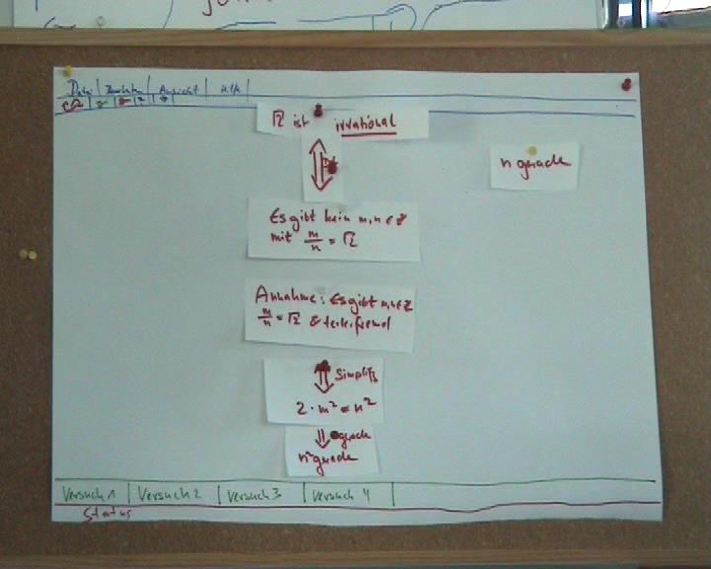 Datei | Bearbeiten | Ansicht | Hilfe
√2 ist irrational
n gerade
Es gibt kein m,n ∈ ℤ
mit m/n = √2
Annahme: Es gibt m,n ∈ ℤ
m/n = √2 & teilerfremd
Simplify
2·m² = n²
gerade
n² gerade
Versuch 1 | Versuch 2 | Versuch 3 | Versuch 4
Status